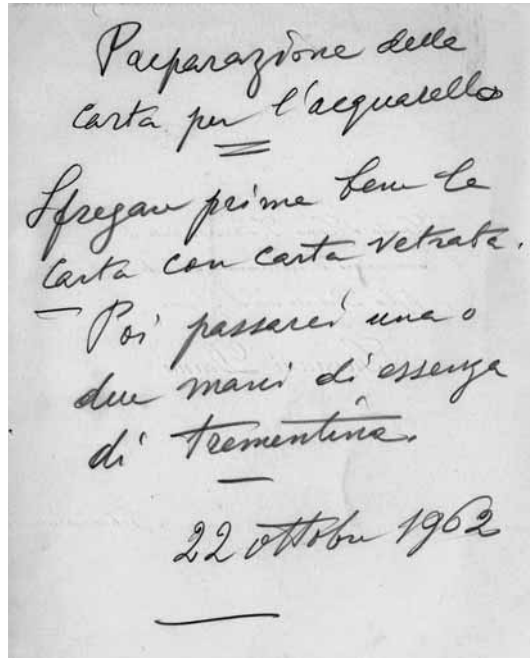 Preparazione della
carta per l'acquarello
Sfregare prima bene la
carta con carta vetrata.
Poi passarci una o
due mani di essenza
di trementina.
22 ottobre 1962